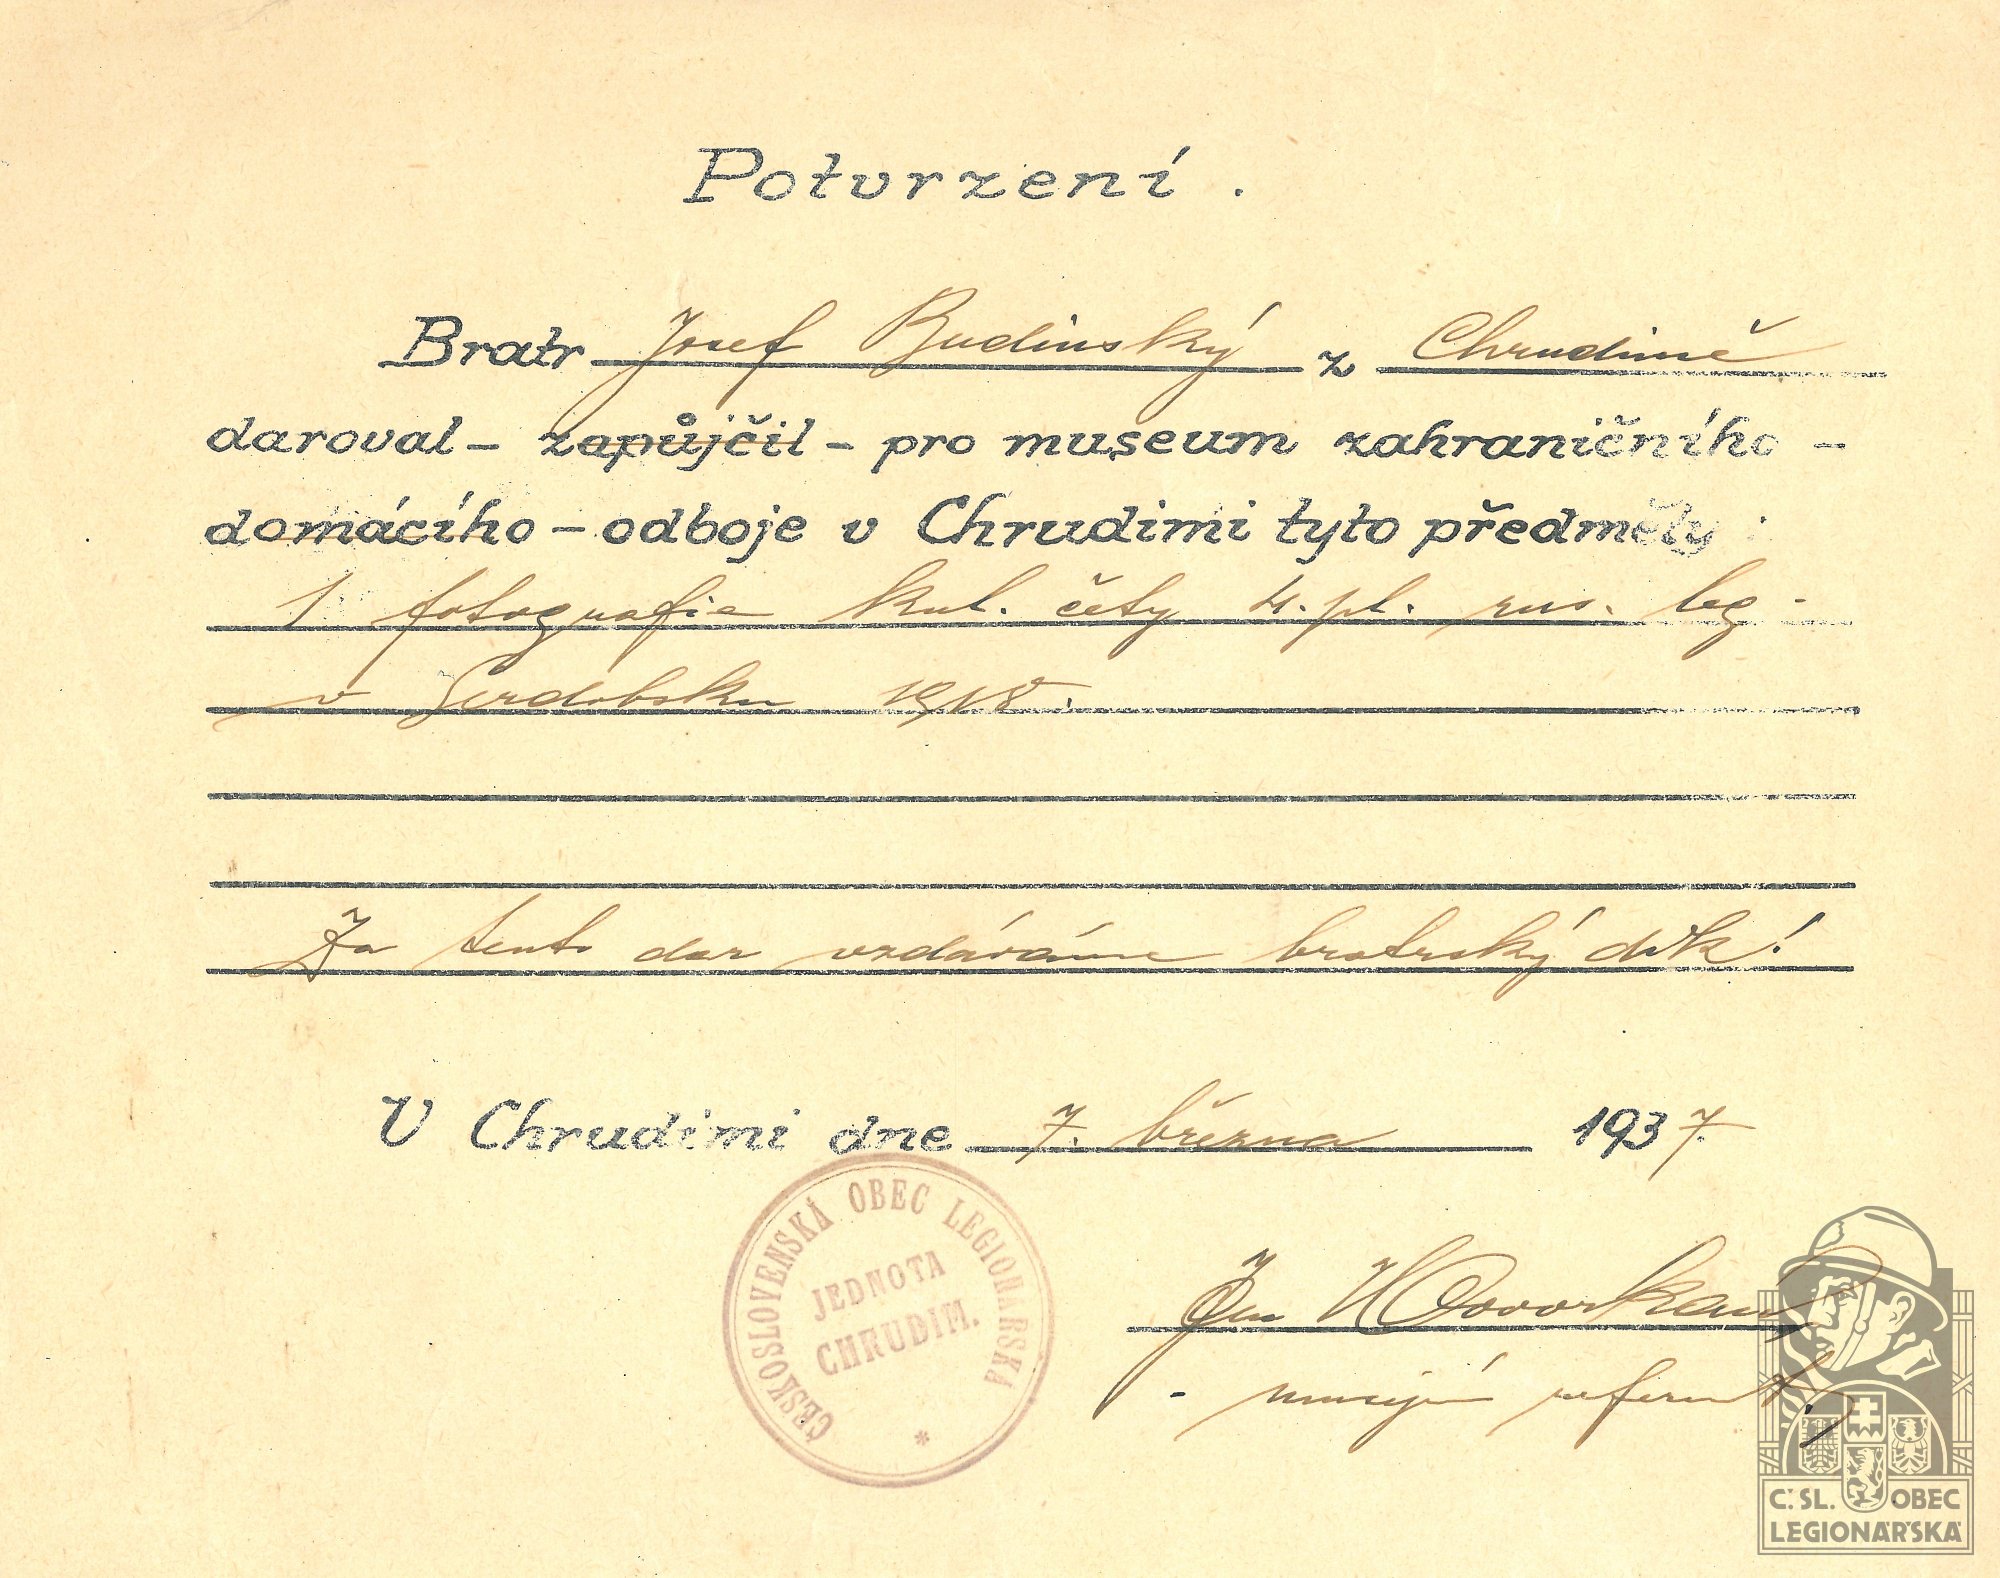 Potvrzení.
Bratr Josef Budinský z Chrudimě
daroval - zapůjčil - pro museum zahraničního -
domácího - odboje v Chrudimi tyto předměty:
1 fotografie kul. čety 4. pl. rus. leg.
v Serdobsku 1918.
Za tento dar vzdáváme bratrský dík!
V Chrudimi dne 7. března 1937.
ČESKOSLOVENSKÁ OBEC LEGIONÁŘSKÁ
JEDNOTA
CHRUDIM.
*
- musejní referent.
Č.SL. OBEC
LEGIONÁŘSKÁ